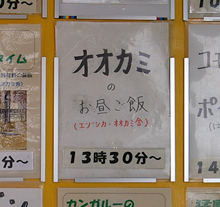 オオカミ
の
お昼ご飯
(エゾシカ・オオカミ舎)
13時30分～
0分～
イム
分～
カンガルーの
コ
ポ
14